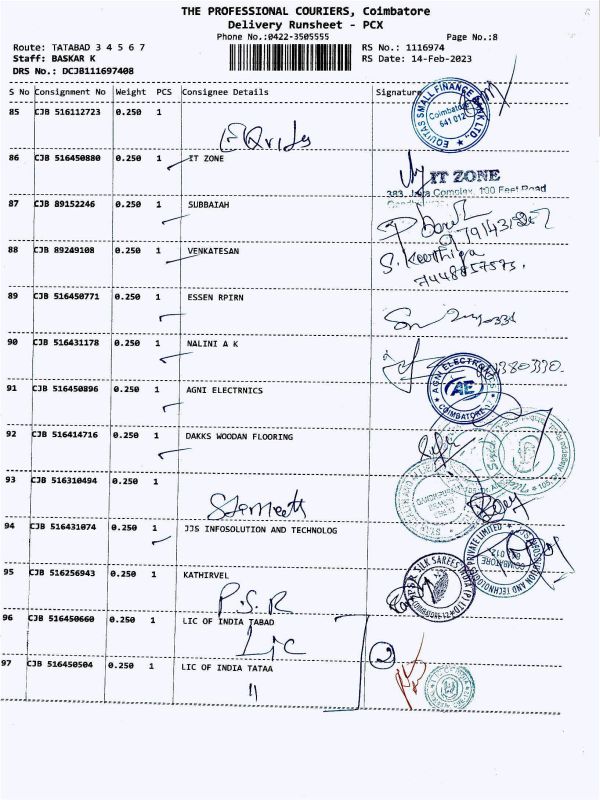 THE PROFESSIONAL COURIERS, Coimbatore
Delivery Runsheet - PCX
Phone No.:0422-3505555
Page No.:8
Route: TATABAD 3 4 5 6 7
RS No.: 1116974
Staff: BASKAR K
RS Date: 14-Feb-2023
DRS No.: DCJB111697408
S No Consignment No Weight PCS Consignee Details Signature
85 CJB 516112723 0.250 1
EQUITAS SMALL FINANCE BANK LTD., Coimbatore 641 012
86 CJB 516450880 0.250 1 IT ZONE
IT ZONE
383, Complex, 100 Feet Road
87 CJB 89152246 0.250 1 SUBBAIAH
88 CJB 89249108 0.250 1 VENKATESAN
S. Keerthiga
89 CJB 516450771 0.250 1 ESSEN RPIRN
90 CJB 516431178 0.250 1 NALINI A K
91 CJB 516450896 0.250 1 AGNI ELECTRNICS
AGNI ELECTRONICS AE COIMBATORE
92 CJB 516414716 0.250 1 DAKKS WOODAN FLOORING
93 CJB 516310494 0.250 1
94 CJB 516431074 0.250 1 JJS INFOSOLUTION AND TECHNOLOG
95 CJB 516256943 0.250 1 KATHIRVEL
P.S.R
SILK SAREES INDIA (P) LTD
96 CJB 516450660 0.250 1 LIC OF INDIA TABAD
LIC
2
97 CJB 516450504 0.250 1 LIC OF INDIA TATAA
"